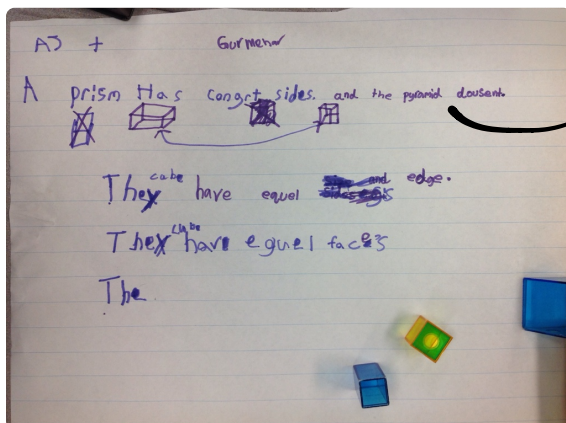 AJ + Gurmehr
A prism Has congrt sides. and the pyramid dousent.
The cube have equel and edge.
The cube have equel faces
The